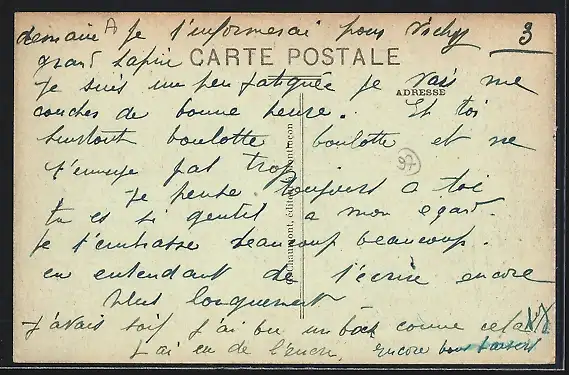 demain A je t'informerai pour Vichy 3
grand lapin CARTE POSTALE
Je suis un peu fatiguée je vais me
ADRESSE
coucher de bonne heure. Et toi
surtout boulotte boulotte et ne
t'ennuye pas trop. 97
Je pense toujours a toi
tu es si gentil a mon égard.
Je t'embrasse beaucoup beaucoup.
en entendant de t'écrire encore
plus longuement
J'avais soif j'ai bu un bock comme cela
j'ai eu de l'encre. encore bons baisers